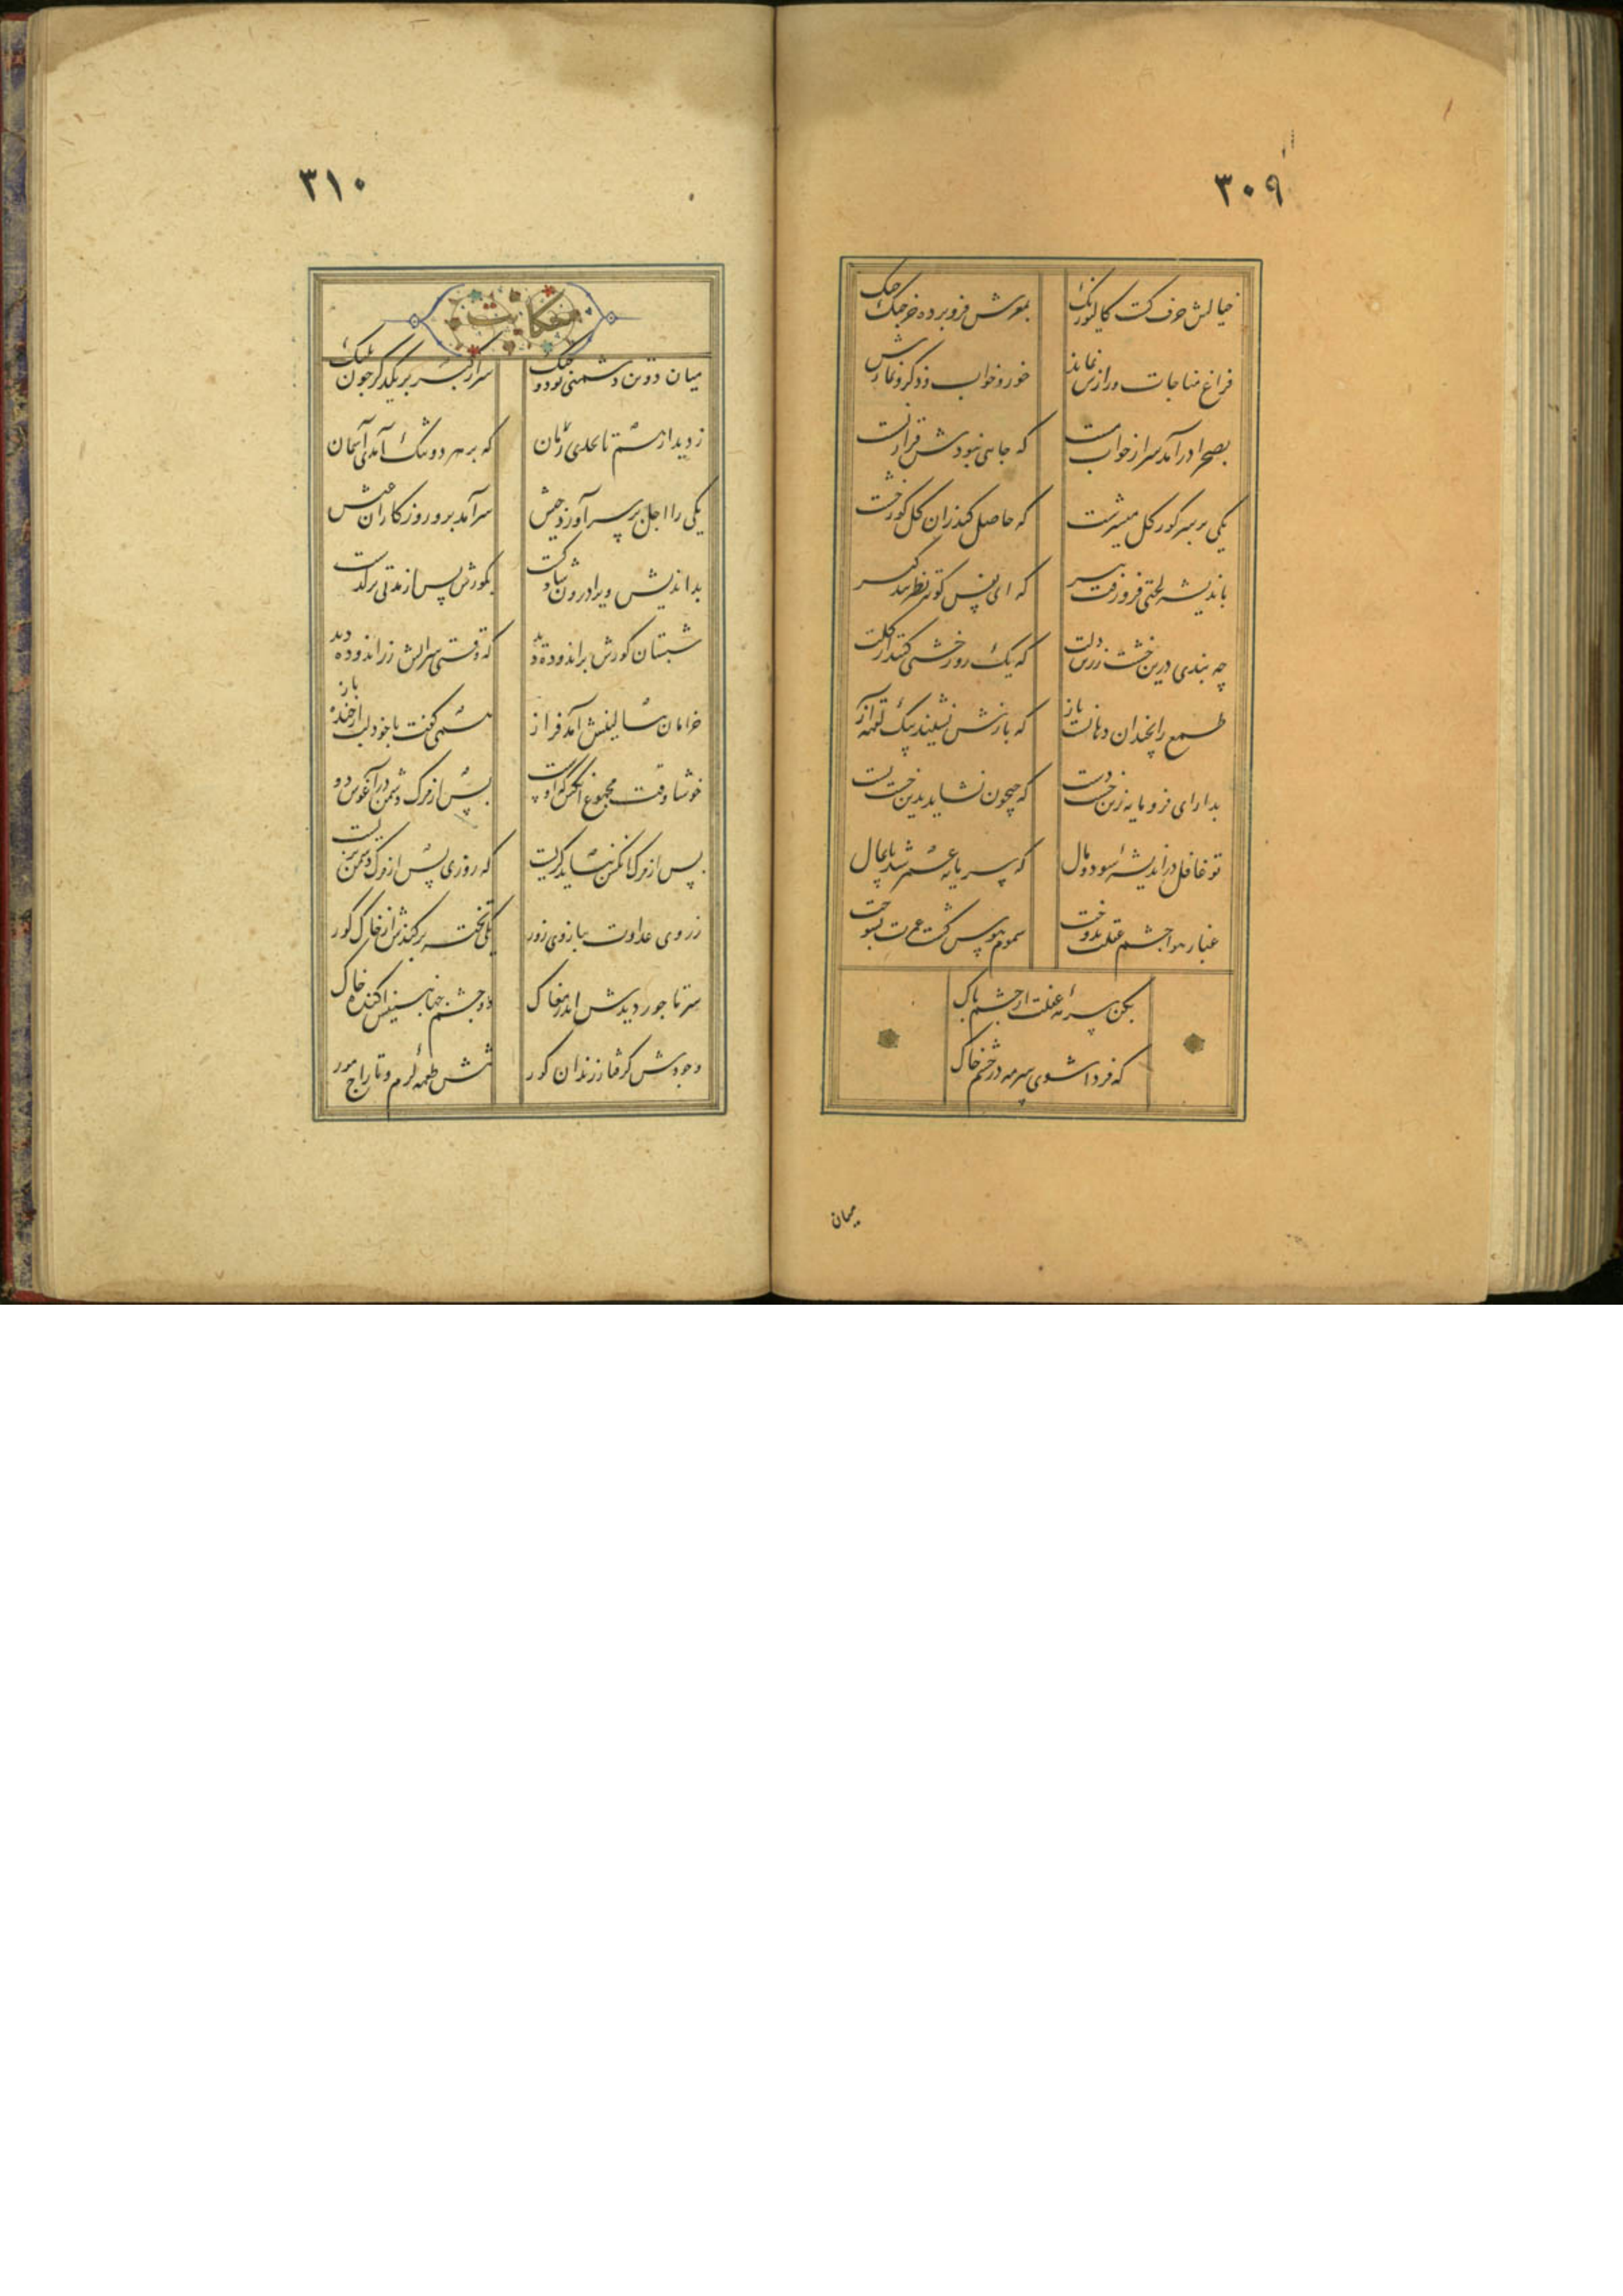 ۳۰۹
خیالش خرف کرد کالیوه رنگ
بمغزش فرو برده خرچنگ چنگ
فراغ مناجات و رازش نماند
خور و خواب و ذکر و نمازش نماند
بصحرا درآمد سر از خواب مست
که جایی نبودش قرار نشست
یکی بر سر گور گل میسرشت
که حاصل کند زان گل گور خشت
باندیشه لختی فرو رفت پیر
که ای نفس کوته نظر پند گیر
چه بندی درین خشت زرین دلت
که یک روز خشتی کنند از گلت
طمع را نچندان دهانست باز
که بازش نشیند بیک لقمه آز
بدار ای فرومایه زین خشت دست
که جیحون نشاید بدین خشت بست
تو غافل در اندیشه سود و مال
که سرمایه عمر شد پایمال
غبار هوا چشم عقلت بدوخت
سموم هوس کشت عمرت بسوخت
بکن سرمه غفلت از چشم پاک
که فردا شوی سرمه در چشم خاک
میان
۳۱۰
حکایت
میان دو تن دشمنی بود و جنگ
سر از کبر بر یکدگر چون پلنگ
ز دیدار هم تا بحدی رمان
که بر هر دو تنگ آمدی آسمان
یکی را اجل بر سر آورد جیش
سرآمد برو روزگاران عیش
بداندیش ویرا درون شاد گشت
بگورش پس از مدتی برگذشت
شبستان گورش براندوده دید
که وقتی سرایش زراندوده دید
خرامان ببالینش آمد فراز
همی گفت با خود لب از خنده باز
خوشا وقت مجموع آنکس که اوست
پس از مرگ دشمن در آغوش دوست
پس از مرگ آنکس نشاید گریست
که روزی پس از مرگ دشمن بزیست
ز روی عداوت ببازوی زور
یکی تخته برکندش از خاک گور
سر تاجور دیدش اندر مغاک
دو چشم جهان بینش آکنده خاک
وجودش گرفتار زندان گور
تنش طعمه کرم و تاراج مور